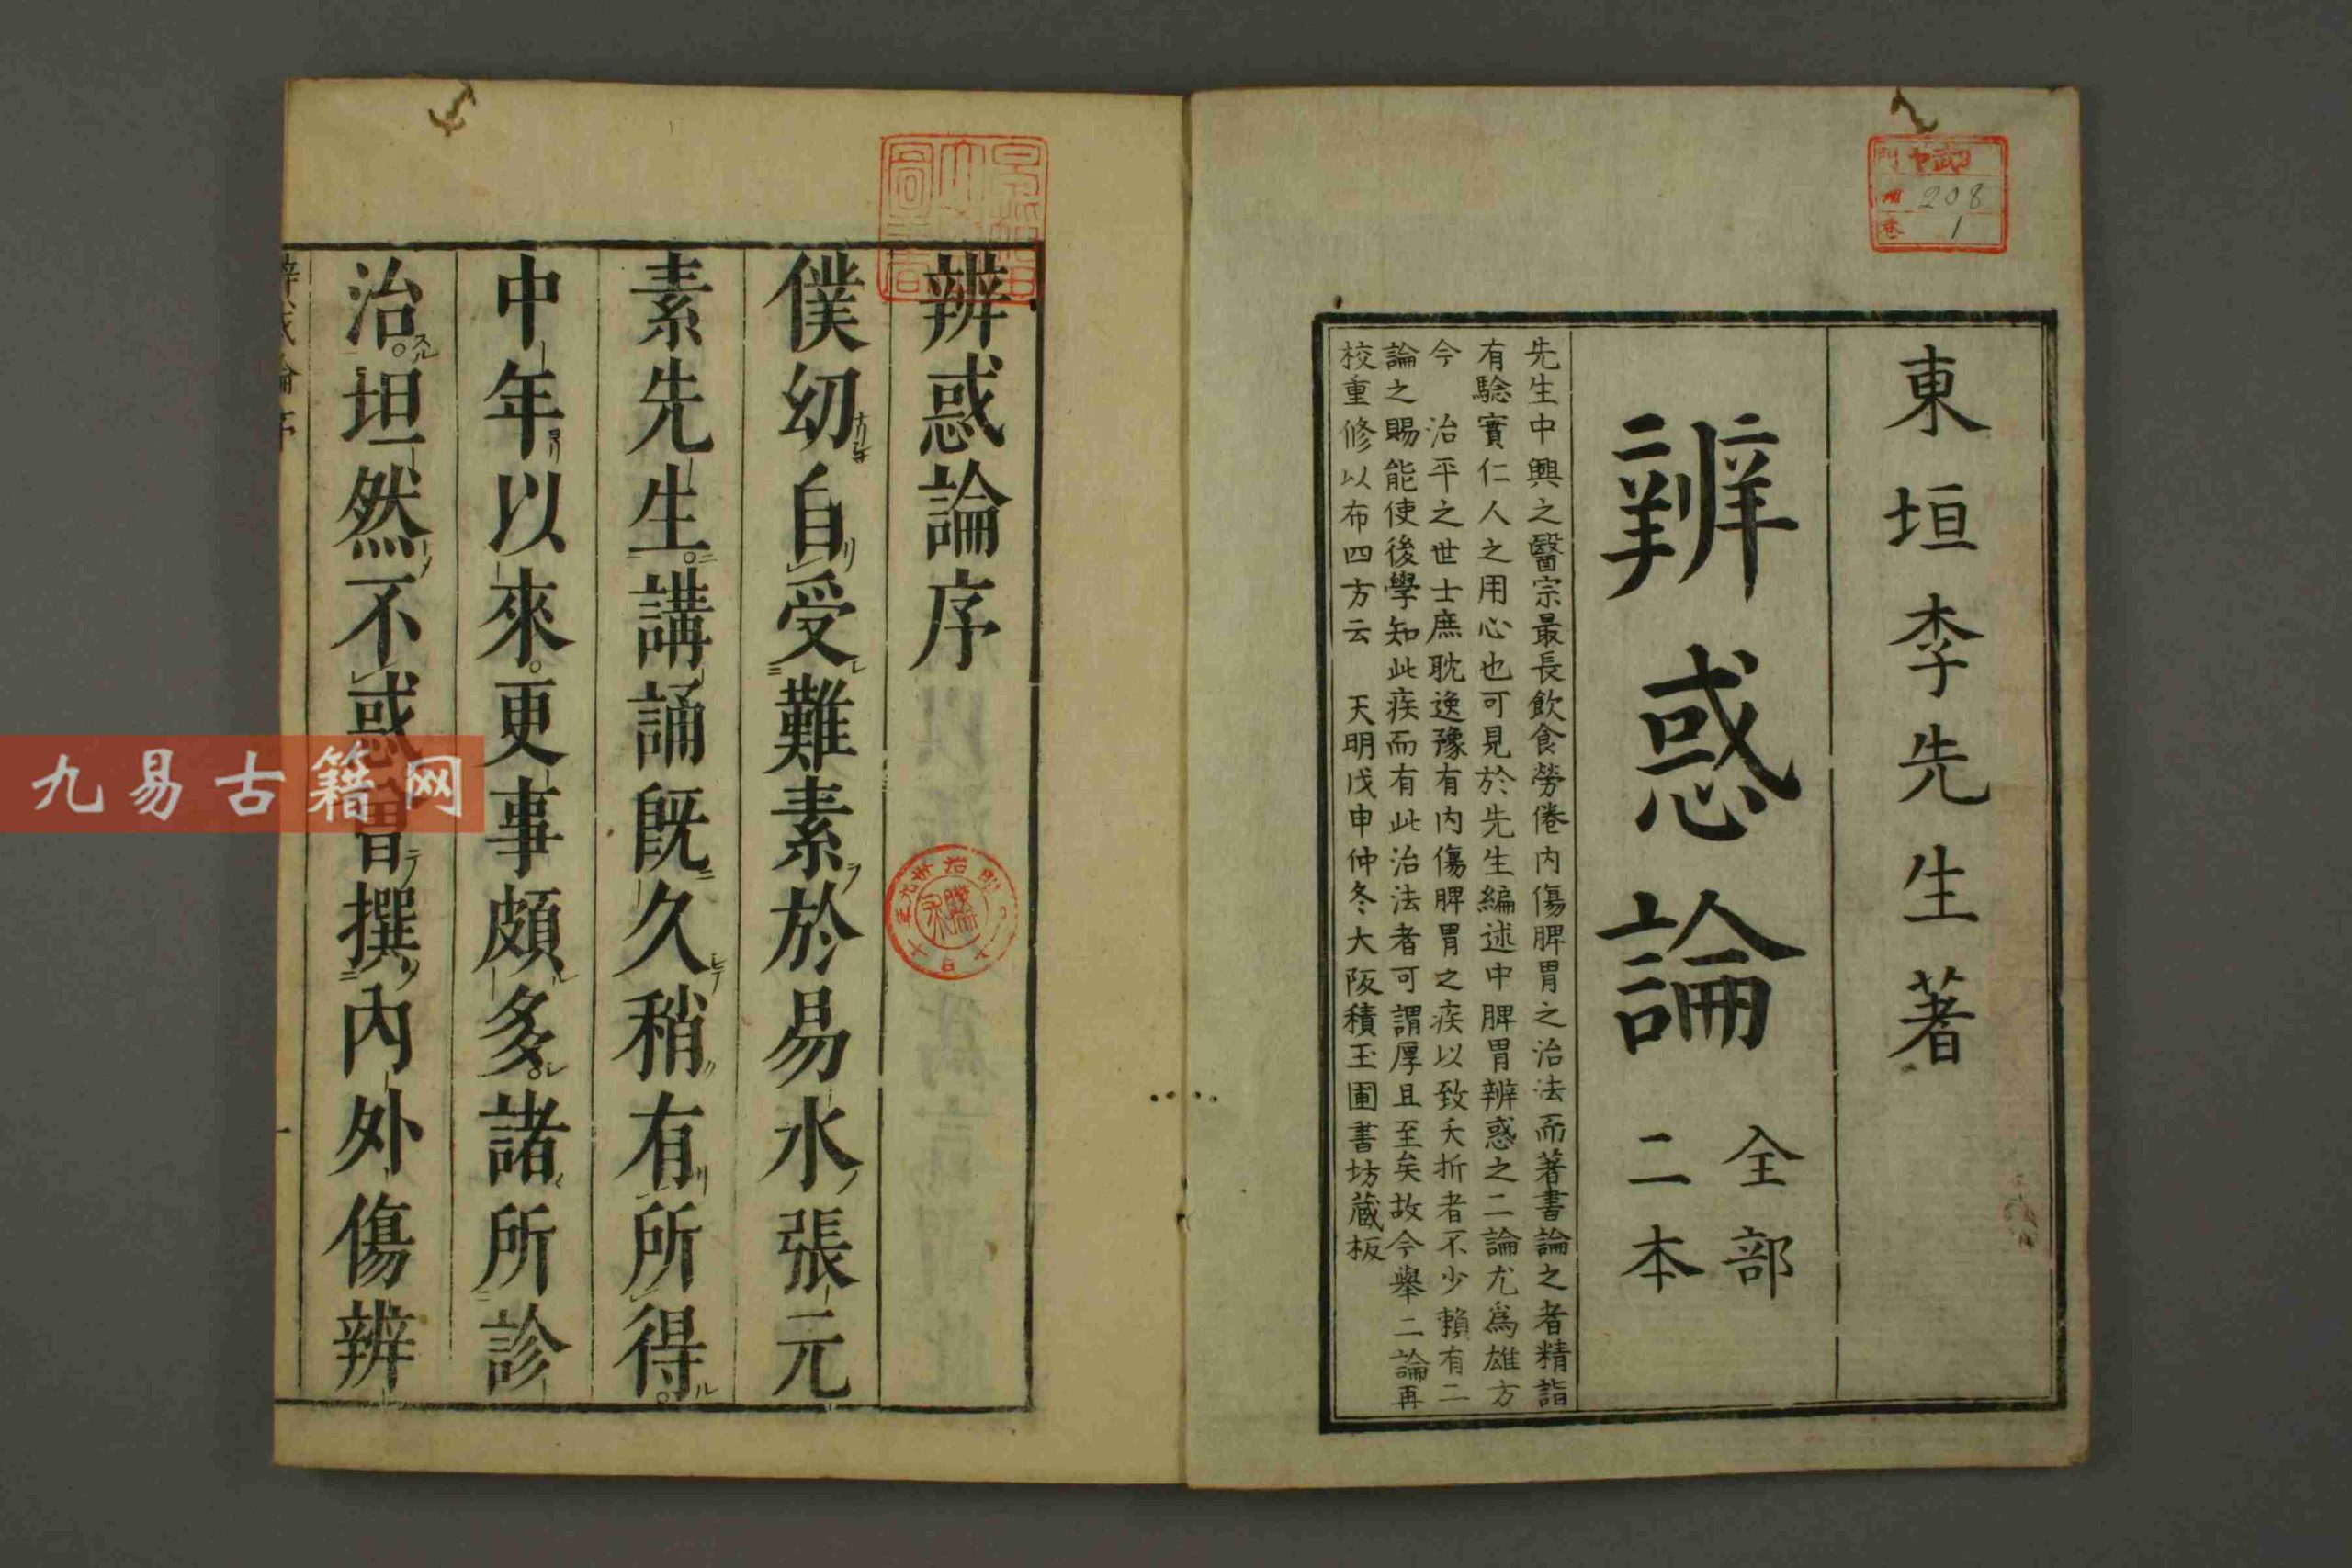 東垣李先生著
辨惑論
全部
二本
先生中興之醫宗最長飲食勞倦內傷脾胃之治法而著書論之者精詣
有驗實仁人之用心也可見於先生編述中脾胃辨惑之二論尤為雄方
今　治平之世士庶耽逸豫有內傷脾胃之疾以致夭折者不少賴有二
論之賜能使後學知此疾而有此治法者可謂厚且至矣故今舉二論再
校重修以布四方云　天明戊申仲冬大阪積玉圃書坊藏板
208
1
辨惑論序
僕幼自受難素於易水張元
素先生講誦旣久稍有所得
中年以來更事頗多諸所診
治坦然不惑曾撰內外傷辨
九易古籍网